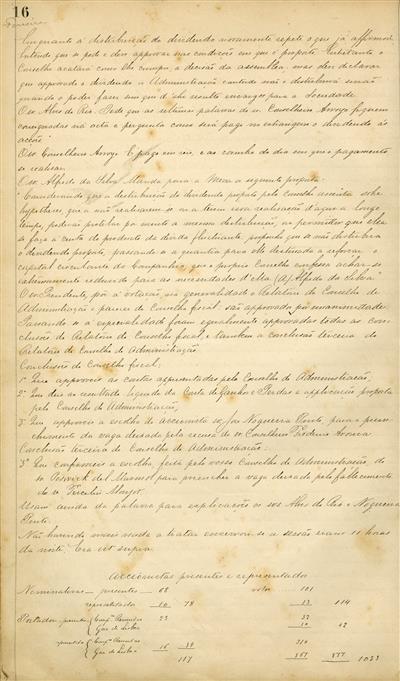 16
Emquanto á distribuição do dividendo novamente repete o que já affirmou
Entende que se pode e deve approvar nas condições em que é proposto. Entretanto o
Conselho acatará como lhe cumpre a decisão da assembléa, mas deve declarar
que approvado o dividendo a Administração contudo não o distribuirá senão
quando o poder fazer sem que d'ahi resulte encargos para a Sociedade
O sr. Alves do Rio. Pede que as ultimas palavras do sr. Conselheiro Arroyo fiquem
consignadas na acta e pergunta como será pago no estrangeiro o dividendo ás
acções
O sr. Conselheiro Arroyo. É pago em reis, e ao cambio do dia em que o pagamento
se realisar.
O sr. Alfredo da Silva. Manda para a Mesa a seguinte proposta:
Considerando que a distribuição do dividendo proposto pelo Conselho assenta sobre
hypotheses que a não realisarem-se ou a terem essa realisação d'aqui a longo
tempo, poderá protelar por muito a mesma distribuição, ou permittir que ella
se faça a custa do producto da divida fluctuante, proponho que se não distribua
o dividendo proposto, passando-se a quantia para elle destinada a reforçar o
capital circulante da Companhia, que o proprio Conselho confessa achar-se
extremamente reduzido para as necessidades d'ella. (a) Alfredo da Silva
O sr. Presidente, põe á votação na generalidade o Relatorio do Conselho de
Administração e parecer do Conselho fiscal. São approvados por unanimidade.
Passando-se á especialidade foram egualmente approvadas todas as con-
clusões do Relatorio do Conselho fiscal, e tambem a conclusão terceira do
Relatorio do Conselho de Administração.
Conclusões do Conselho fiscal:
1ª Que approveis as contas apresentadas pelo Conselho de Administração,
2ª Que deis ao resultado liquido da Conta de Ganhos e Perdas a applicação proposta
pelo Conselho de Administração,
3ª Que approveis a escolha do accionista sr. Nogueira Pinto, para o preen-
chimento da vaga deixada pela recusa do sr. Conselheiro Frederico Arouca
Conclusão terceira do Conselho de Administração:
3ª Que confirmeis a escolha feita pelo vosso Conselho de Administração, do
sr. para preencher a vaga deixada pelo fallecimento
do sr.
Usam ainda da palavra para explicações os srs. Alves do Rio e Nogueira
Pinto.
Não havendo mais nada a tratar encerrou-se a sessão eram 11 horas
da noite. Era ut supra.
Accionistas presentes e representados
Nominativas — presentes — 68 votos — 101
representados 10 78 13 114
Portador — presentes Comp. 23 32
Gaz de Lisboa 10 42
Gaz de Lisboa 16 39
117 877 1033